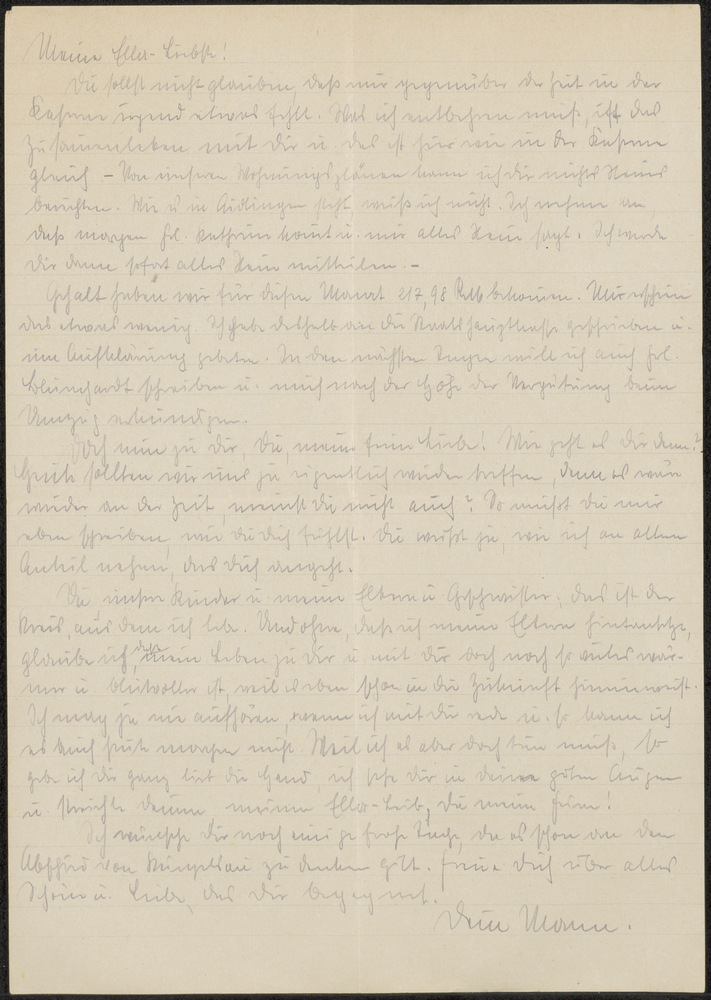 Meine Ella-Liebste!
Du sollst nicht glauben, daß mir gegenüber der Zeit in der
Kaserne irgend etwas fehlt. Was ich entbehren muß, ist das
Zusammenleben mit Dir u. das ist hier wie in der Kaserne
gleich – Von unseren Wohnungsplänen kann ich dir nichts Neues
berichten. Wie es in Aidlingen steht weiß ich nicht. Ich nehme an,
daß morgen Frl. Kathrin kommt u. mir alles Neue sagt. Ich werde
Dir dann sofort alles Neue mitteilen. –
Gehalt haben wir für diesen Monat 217,98 RM bekommen. Mir erschien
das etwas wenig. Ich habe deshalb an die Staatshauptkasse geschrieben u.
um Aufklärung gebeten. In den nächsten Tagen will ich auch Frl.
Blumhardt schreiben u. mich nach der Höhe der Vergütung beim
Umzug erkundigen.
Doch nun zu Dir, Du, meine feine Liebe! Wie geht es Dir denn?
Heute sollten wir uns ja eigentlich wieder treffen, denn es wäre
wieder an der Zeit, meinst Du nicht auch? So mußt Du mir
eben schreiben, wie Du Dich fühlst. Du weißt ja, wie ich an allem
Anteil nehme, das Dich angeht.
Du unsere Kinder u. meine Eltern u. Geschwister, das ist der
Kreis, aus dem ich lebe. Und ohne, daß ich meine Eltern hintansetze,
glaube ich, daß mein Leben zu Dir u. mit Dir doch noch so vieles wär-
mer u. blutvoller ist, weil es eben schon in die Zukunft hineinweist.
Ich mag ja nie aufhören, wenn ich mit Dir rede u. so kann ich
es auch heute morgen nicht. Weil ich es aber doch tun muß, so
gebe ich Dir ganz lieb die Hand, ich sehe Dir in deine guten Augen
u. streichle Deinen, meinen Ella-Leib, Du meine Feine!
Ich wünsche Dir noch einige frohe Tage, da es schon an den
Abschied von Künzelsau zu denken gilt. Freue Dich über alles
Schöne u. Liebe, das Dir begegnet.
Dein Mann.